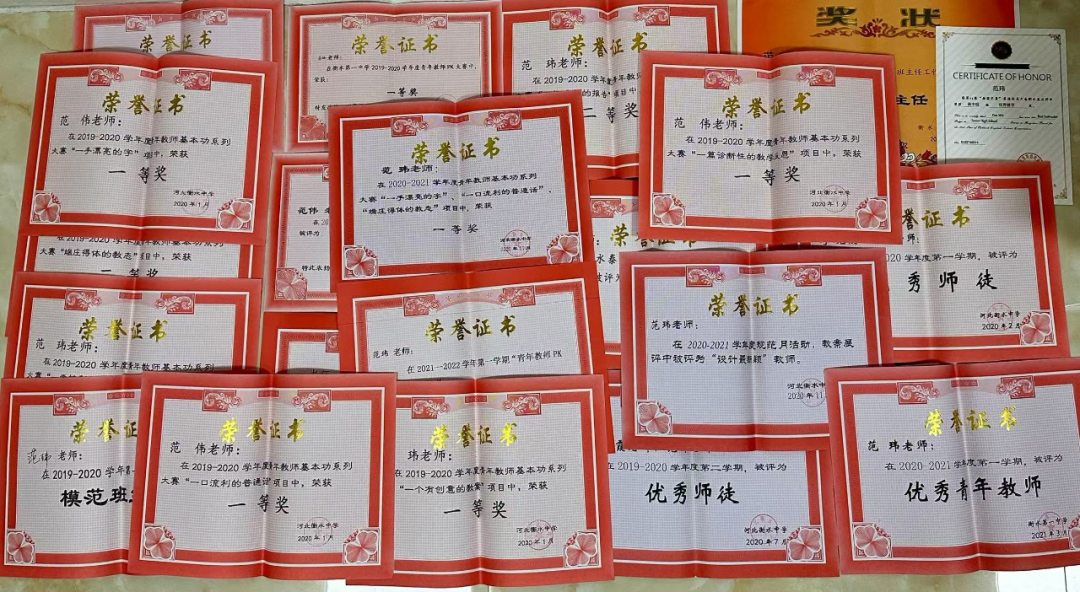 荣誉证书
荣誉证书
老师:
在衡水第一中学2019-2020学年度青年教师PK大赛中,
荣获:
一等奖
荣誉证书
范 玮老师:
在2019-2020学年
二等奖
奖状
班主任工作
主任
CERTIFICATE OF HONOR
范玮
荣誉证书
范 伟老师:
在2019-2020学年度青年教师基本功系列
大赛“一手漂亮的字”项中,荣获
一等奖
河北衡水中学
2020年1月
荣誉证书
范 玮老师:
在2020-2021学年度青年教师基本功系列
大赛“一手漂亮的字”、“一口流利的普通话”、
“端庄得体的教态”项目中,荣获
一等奖
荣誉证书
范 玮老师:
在2019-2020学年度青年教师基本功系列
大赛“一篇诊断性的教学反思”项目中,荣获
一等奖
河北衡水中学
2020年1月
范伟
被评为
荣誉证书
荣誉证书
老师:
2020学年度第一学期,被评为
秀师徒
河北衡水中学
2020年2月
大赛“端庄得体的教态”项目中,荣获
一等奖
荣誉证书
范 玮老师:
在2019-2020学年度青年教师基本功系列
荣誉证书
范玮 老师:
在2021—2022学年第一学期“青年教师PK
荣誉证书
范玮老师:
在2020-2021学年度规范月活动,教案展
评中被评为“设计最新颖”教师。
河北衡水中学
2020年11月
荣誉证书
范伟 老师:
在2019-2020学年
模范班
荣誉证书
范 伟老师:
在2019-2020学年度青年教师基本功系列
大赛“一口流利的普通话”项目中,荣获
一等奖
河北衡水中学
2020年1月
荣誉证书
在2019-2020学年度青年教师基本功系列
“一个有创意的教案”项目中,荣获
一等奖
河北衡水中学
2020年1月
2019-2020学年度第二学期,被评为
优秀师徒
河北衡水中学
2020年7月
荣誉证书
范 玮老师:
在2020-2021学年度第一学期,被评为
优秀青年教师
衡水第一中学
2021年3月